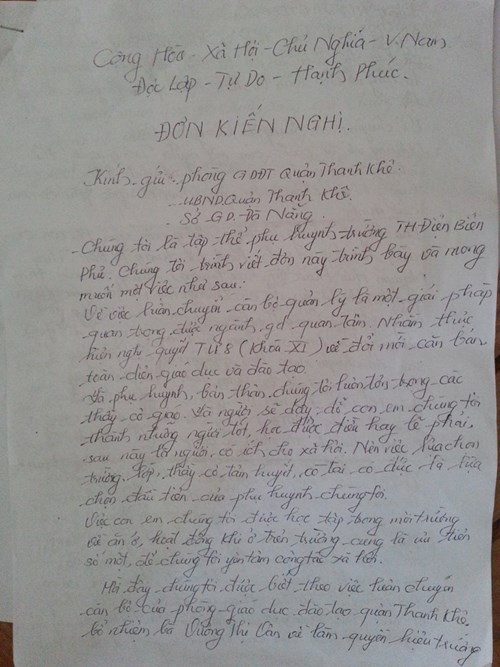 Cộng Hòa - Xã Hội - Chủ Nghĩa - V.Nam
Độc Lập - Tự Do - Hạnh Phúc.
ĐƠN KIẾN NGHỊ.
Kính gửi - phòng GDĐT Quận Thanh Khê.
- UBND Quận Thanh Khê.
- Sở GD - Đà Nẵng.
- Chúng tôi là tập thể phụ huynh trường TH Điện Biên
Phủ. Chúng tôi viết đơn này trình bày và mong
muốn một việc như sau:
Về việc luân chuyển cán bộ quản lý là một giải pháp
quan trọng được ngành gd quan tâm. Nhằm thực
hiện nghị quyết TW 8 (Khóa XI) về đổi mới căn bản.
toàn diện giáo dục và đào tạo.
Là phụ huynh, bản thân chúng tôi luôn tôn trọng các
thầy cô giáo. Là người sẽ dạy dỗ con em chúng tôi
thành những người tốt, học được điều hay lẽ phải.
sau này là người có ích cho xã hội. Nên việc lựa chọn
trường lớp, thầy cô tâm huyết, có tài có đức là lựa
chọn đầu tiên của phụ huynh chúng tôi.
Việc con em chúng tôi được học tập trong môi trường
và ăn ở, hoạt động khi ở trên trường cũng là ưu tiên
số một, để chúng tôi yên tâm công tác xã hội.
Mới đây chúng tôi được biết theo việc luân chuyển
cán bộ của phòng giáo dục đào tạo quận Thanh Khê.
bổ nhiệm bà Vương Thị Vân về làm quyền hiệu trưởng